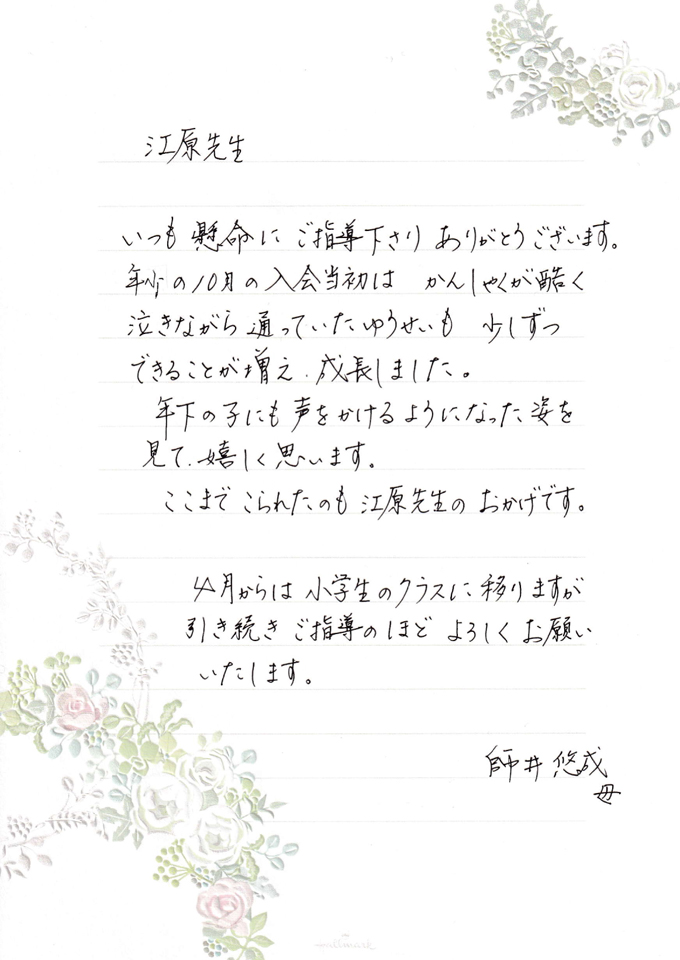 江原先生
いつも 懸命に ご指導下さり ありがとうございます。
年少の10月の入会当初は かんしゃくが酷く
泣きながら 通っていたゆうせいも 少しずつ
できることが増え、成長しました。
年下の子にも 声をかけるようになった 姿を
見て、嬉しく思います。
ここまで こられたのも 江原先生の おかげです。
4月からは 小学生のクラスに 移りますが
引き続き ご指導のほど よろしく お願い
いたします。
師井 悠成
母
Hallmark